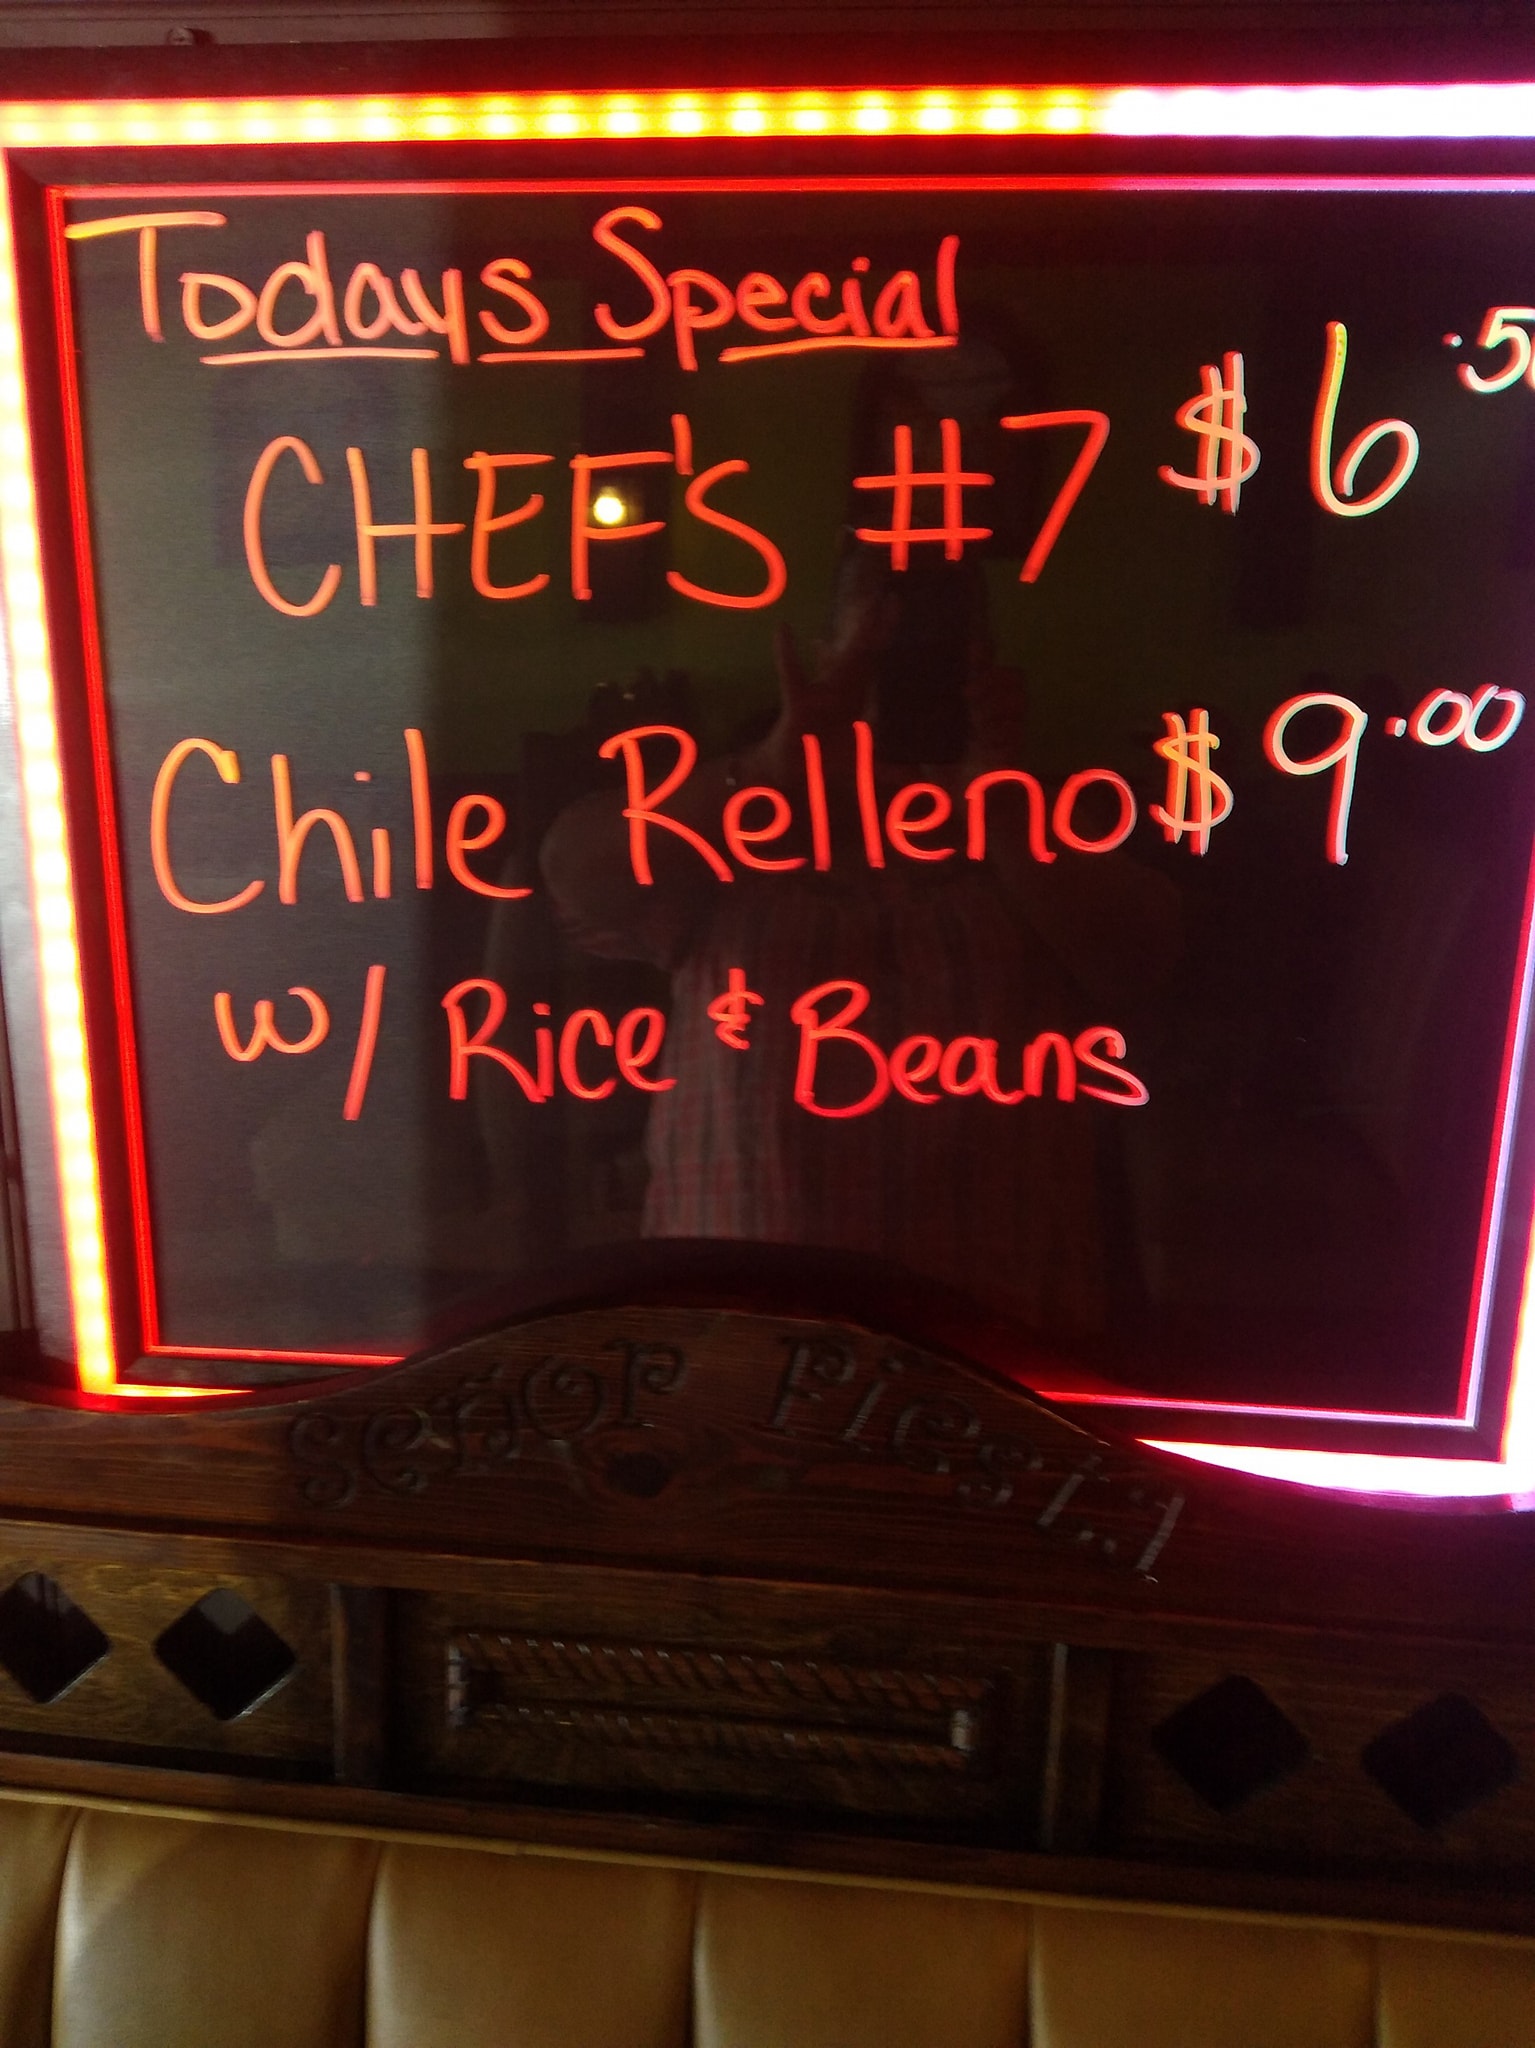 Todays Special
CHEF'S #7 $6.50
Chile Relleno $9.00
w/ Rice & Beans
Senor Fiesta